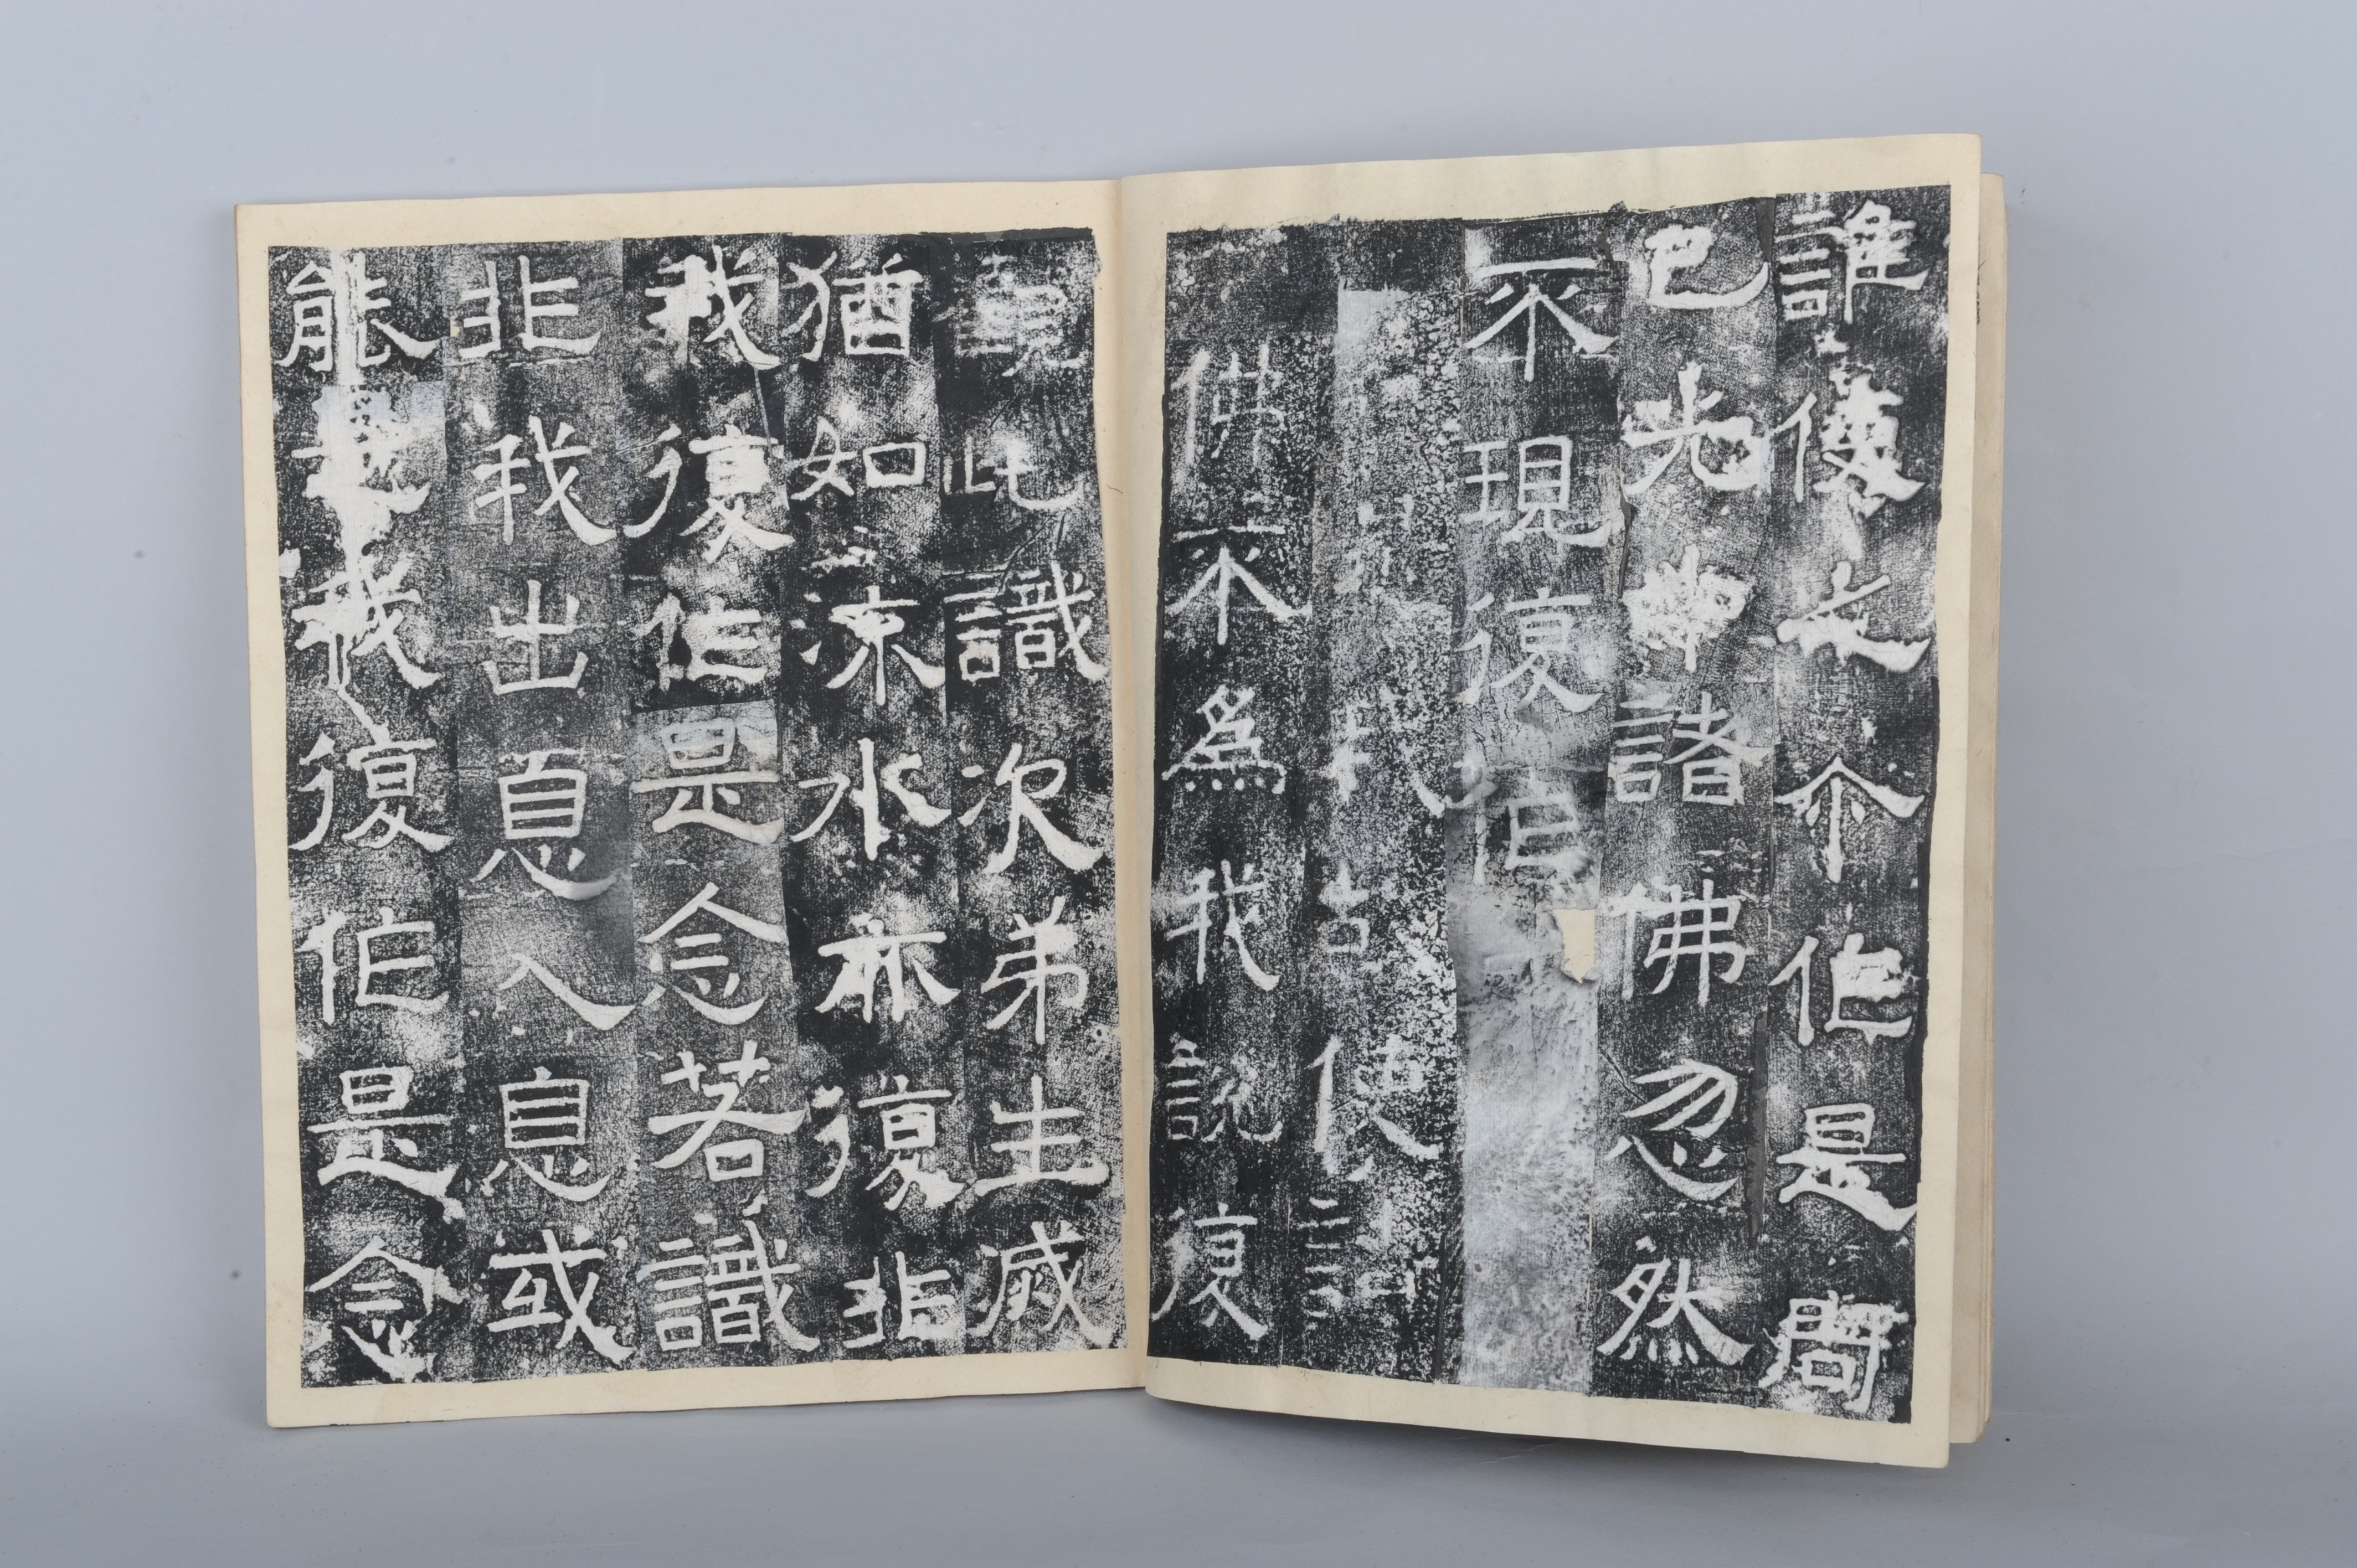 誰使之尒作是問
已光中諸佛忽然
不現復作
我使諸
佛不為我說復
觀此識次弟生滅
猶如凉水亦復非
我復作是念若識
非我出息入息或
能是我復作是念